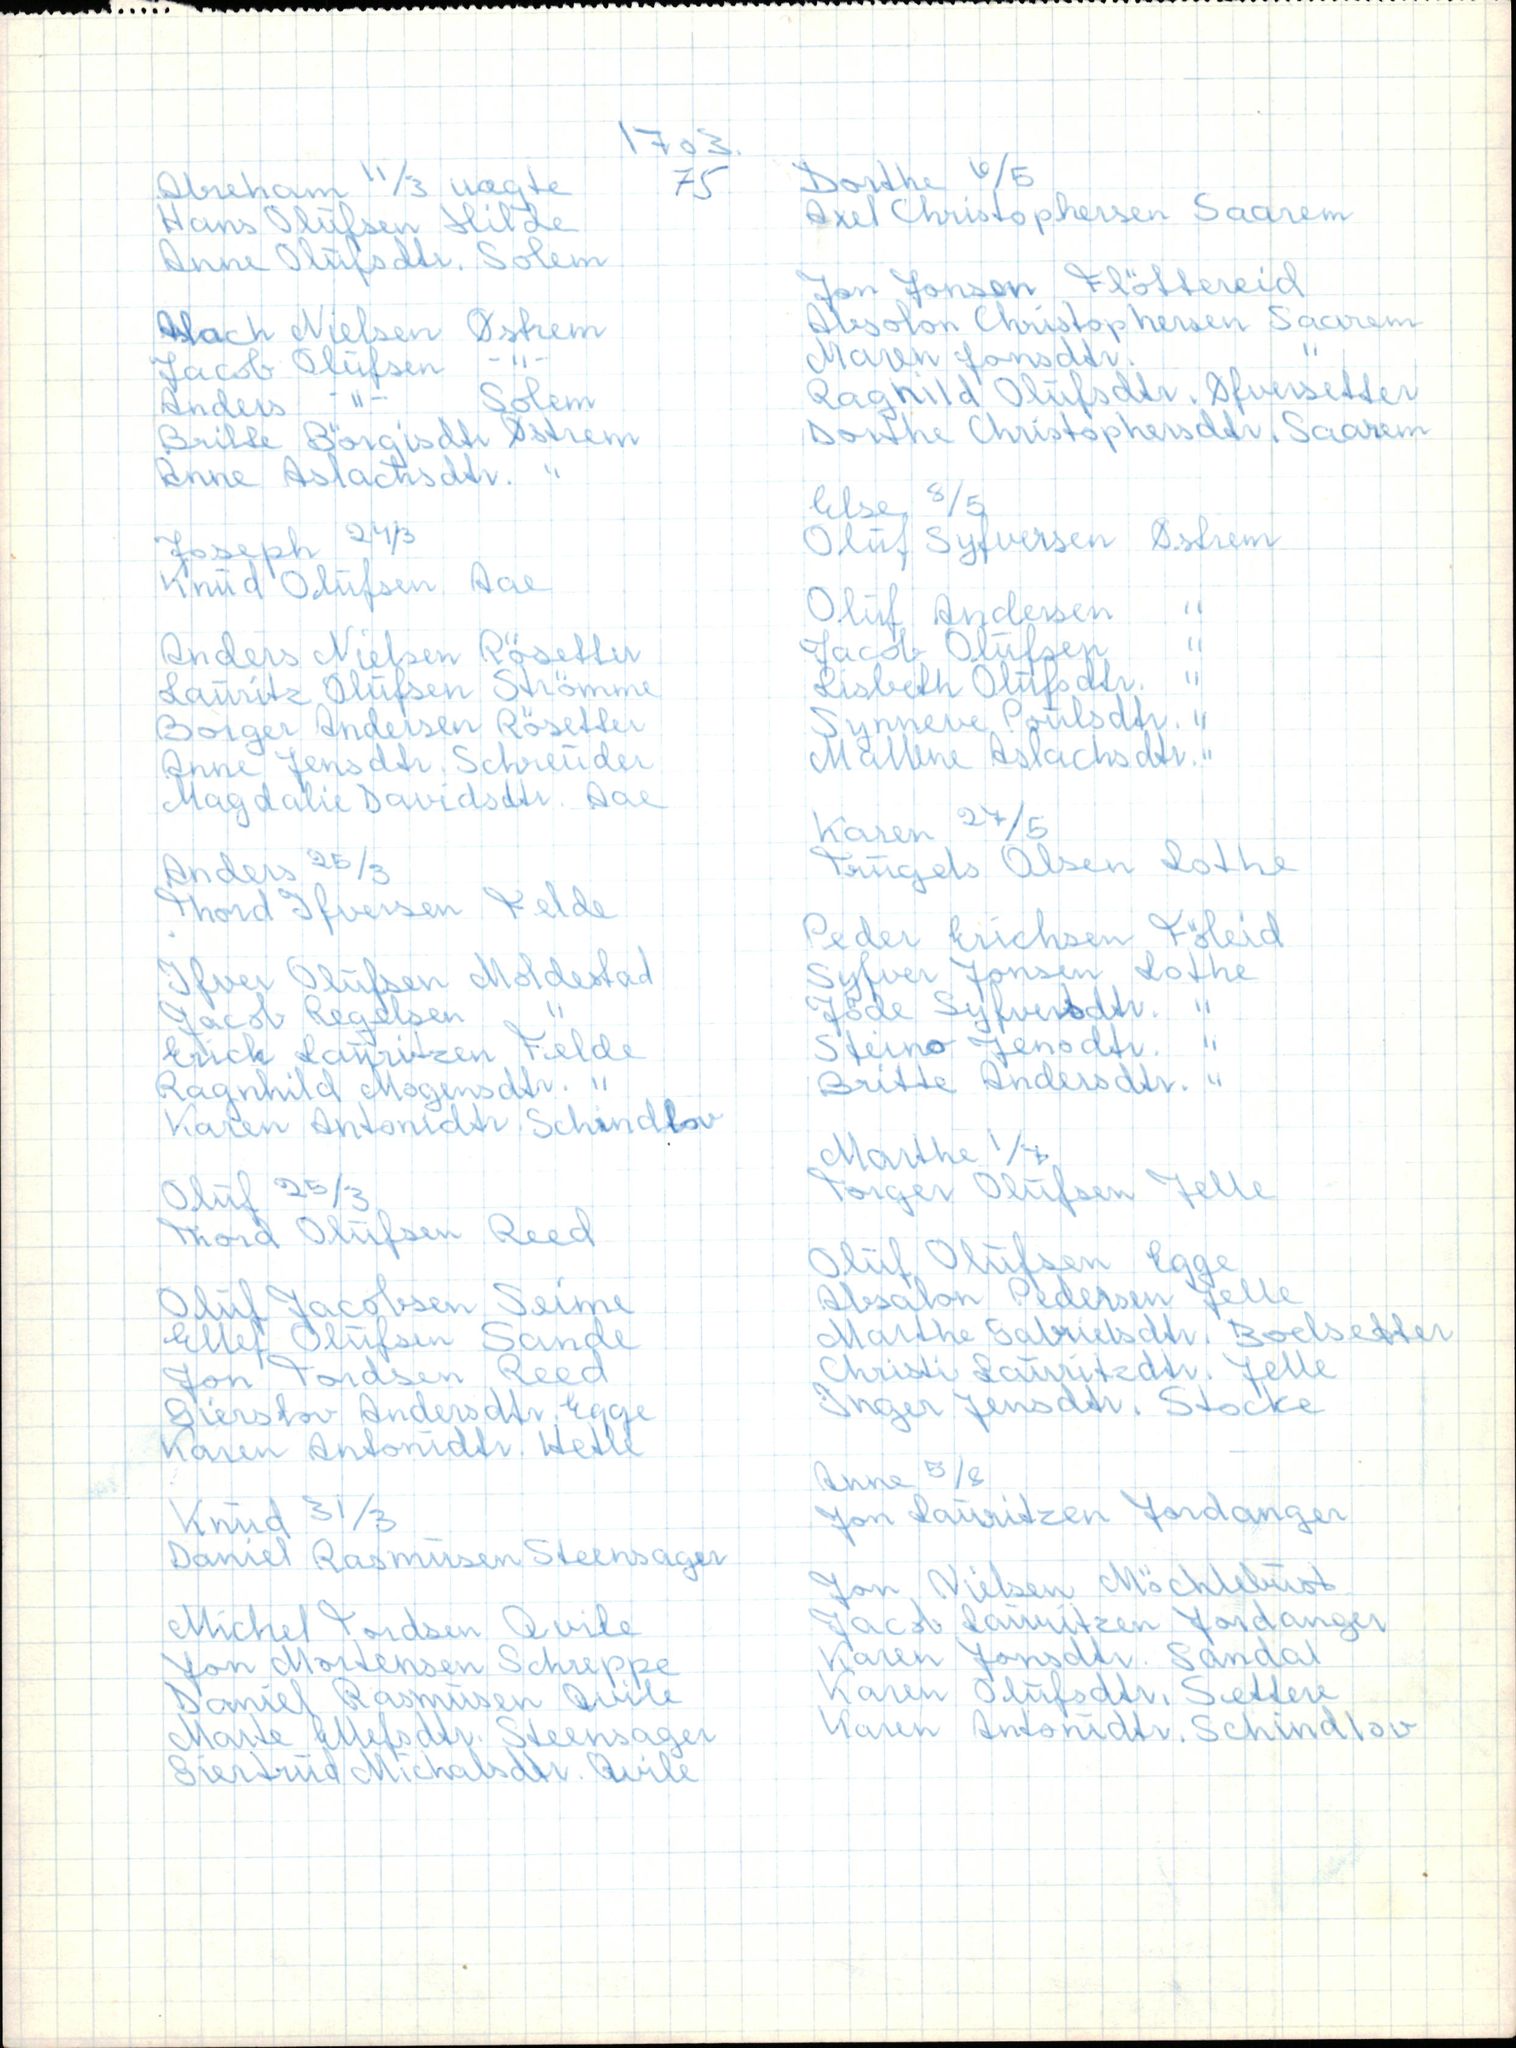 1703.
75
Abreham 11/3 uægte
Hans Olüfsen Hilde
Anne Olüfsdtr. Solem
Aslach Nielsen Østrem
Jacob Olüfsen -"-
Anders -"- Solem
Britte Börgisdtr Østrem
Anne Aslachsdtr. "
Joseph 24/3
Knüd Olüfsen Aae
Anders Nielsen Rösetter
Laüritz Olüfsen Strömme
Borger Andersen Rösetter
Anne Jensdtr. Schreüder
Magdalie Davidsdtr. Aae
Anders 25/3
Thord Ifversen Felde
Ifver Olüfsen Moldestad
Jacob Regelsen "
Erick Laüritzen Felde
Ragnhild Mogensdtr. "
Karen Antonidtr. Schindlov
Olüf 25/3
Thord Olüfsen Reed
Olüf Jacobsen Seime
Ellef Olüfsen Sande
Jon Tordsen Reed
Gierslov Andersdtr. Egge
Karen Antonidtr. Hetle
Knüd 31/3
Daniel Rasmüsen Steensager
Michel Tordsen Qvile
Jon Mortensen Schreppe
Daniel Rasmüsen Qvile
Marte Ellefsdtr. Steensager
Giertrüd Michalsdtr. Qvile
Dorthe 6/5
Axel Christophersen Saarem
Jon Jonsen Flöttereid
Absolon Christophersen Saarem
Maren Jonsdtr. "
Ragnild Olüfsdtr. Øfversetter
Dorthe Christophersdtr. Saarem
Else 8/5
Olüf Syfversen Østrem
Olüf Andersen "
Jacob Olüfsen "
Lisbeth Olüfsdtr. "
Synneve Poülsdtr. "
Mallene Aslachsdtr. "
Karen 27/5
Trügels Olsen Lothe
Peder Erichsen Föleid
Syfver Jonsen Lothe
Jöde Syfversdtr. "
Steino Jensdtr. "
Britte Andersdtr. "
Marthe 1/7
Torger Olüfsen Jelle
Olüf Olüfsen Egge
Absalon Pedersen Jelle
Marthe Gabrielsdtr. Bodsetter
Christi Laüritzdtr. Jelle
Inger Jensdtr. Stocke
Anne 5/8
Jon Laüritzen Jordanger
Jon Nielsen Möchlebüst
Jacob Laüritzen Jordanger
Karen Jonsdtr. Sandal
Karen Olüfsdtr. Settere
Karen Antonidtr. Schindlov